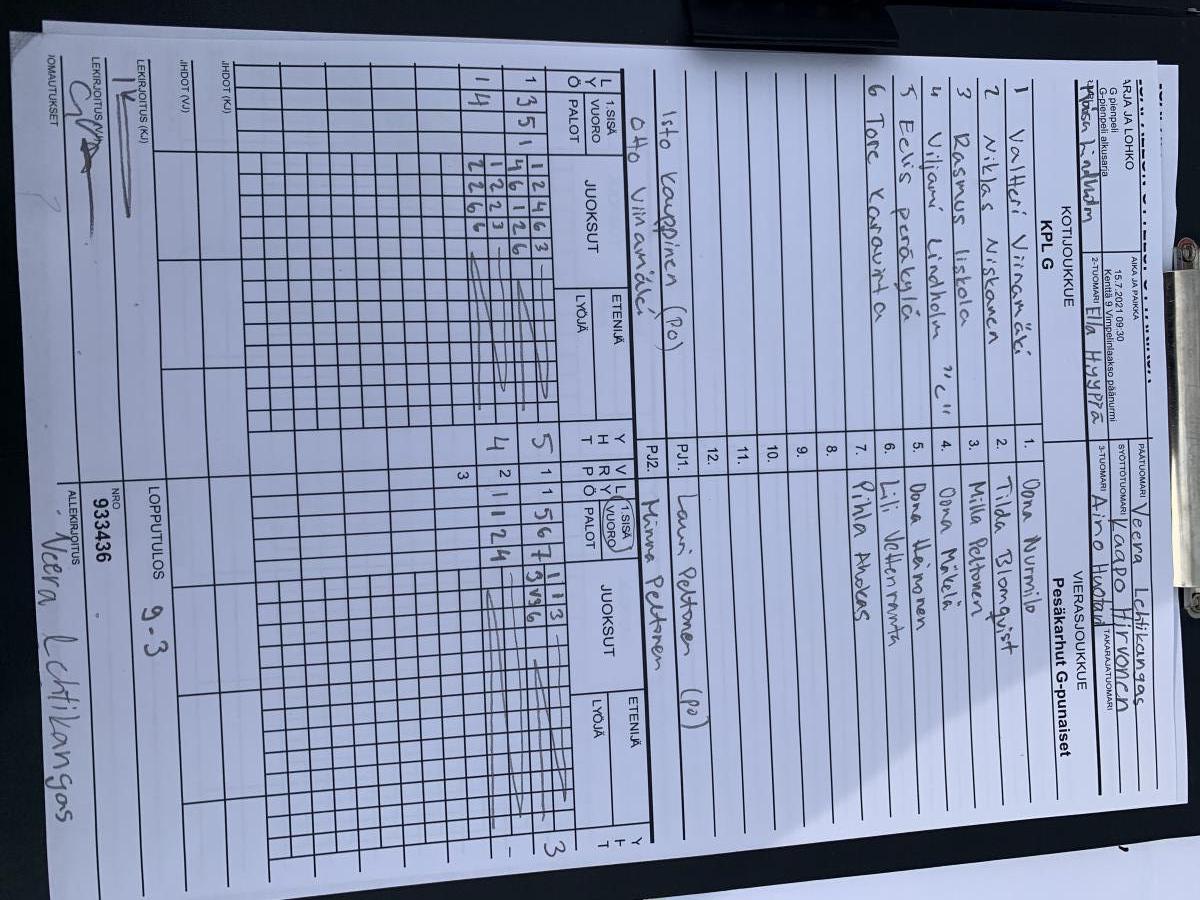 ARJA JA LOHKO
G pienpeli
G-pienpeli alkusarja
AIKA JA PAIKKA
15.7.2021 09:30
Kenttä 9 Vimpelinlaakso päänurmi
PÄÄTUOMARI Veera Lehtikangas
SYÖTTÖTUOMARI Kaapo Hirvonen
Lindholm
2-TUOMARI Ella Hyyppä
3-TUOMARI Aino
TAKARAJATUOMARI
KOTIJOUKKUE
KPL G
VIERASJOUKKUE
Pesäkarhut G-punaiset
1 Valtteri Viinamäki
1. Oona Nurmilo
2 Niklas Niskanen
2. Tiida Blomqvist
3 Rasmus Iiskola
3. Milla Peltonen
4 Viljami Lindholm "C"
4. Oona Mäkelä
5 Eelis Peräkylä
5. Oona Heinonen
6 Tore Karavirta
6. Lili Vetteranta
7. Pihla Ahokas
8.
9.
10.
11.
12.
Isto Kauppinen (PO)
PJ1. Lauri Peltonen (PO)
Otto Viinamäki
PJ2. Minna Peltonen
LYÖ
1.SISÄ
VUORO
PALOT
JUOKSUT
ETENIJÄ
LYÖJÄ
YHT
VRP
LYÖ
1.SISÄ
VUORO
PALOT
JUOKSUT
ETENIJÄ
LYÖJÄ
YHT
1 3 5 1
1 2 4 6 3
4 6 1 2 6
5
1
1 5 6 7
1 1 3
3
1 4
1 2 2 3
2 2 6 6
4
2
1 1 2 4
-
3
JHDOT (KJ)
JHDOT (VJ)
LEKIRJOITUS (KJ)
LOPPUTULOS 9-3
NRO
933436
ALLEKIRJOITUS
Veera Lehtikangas